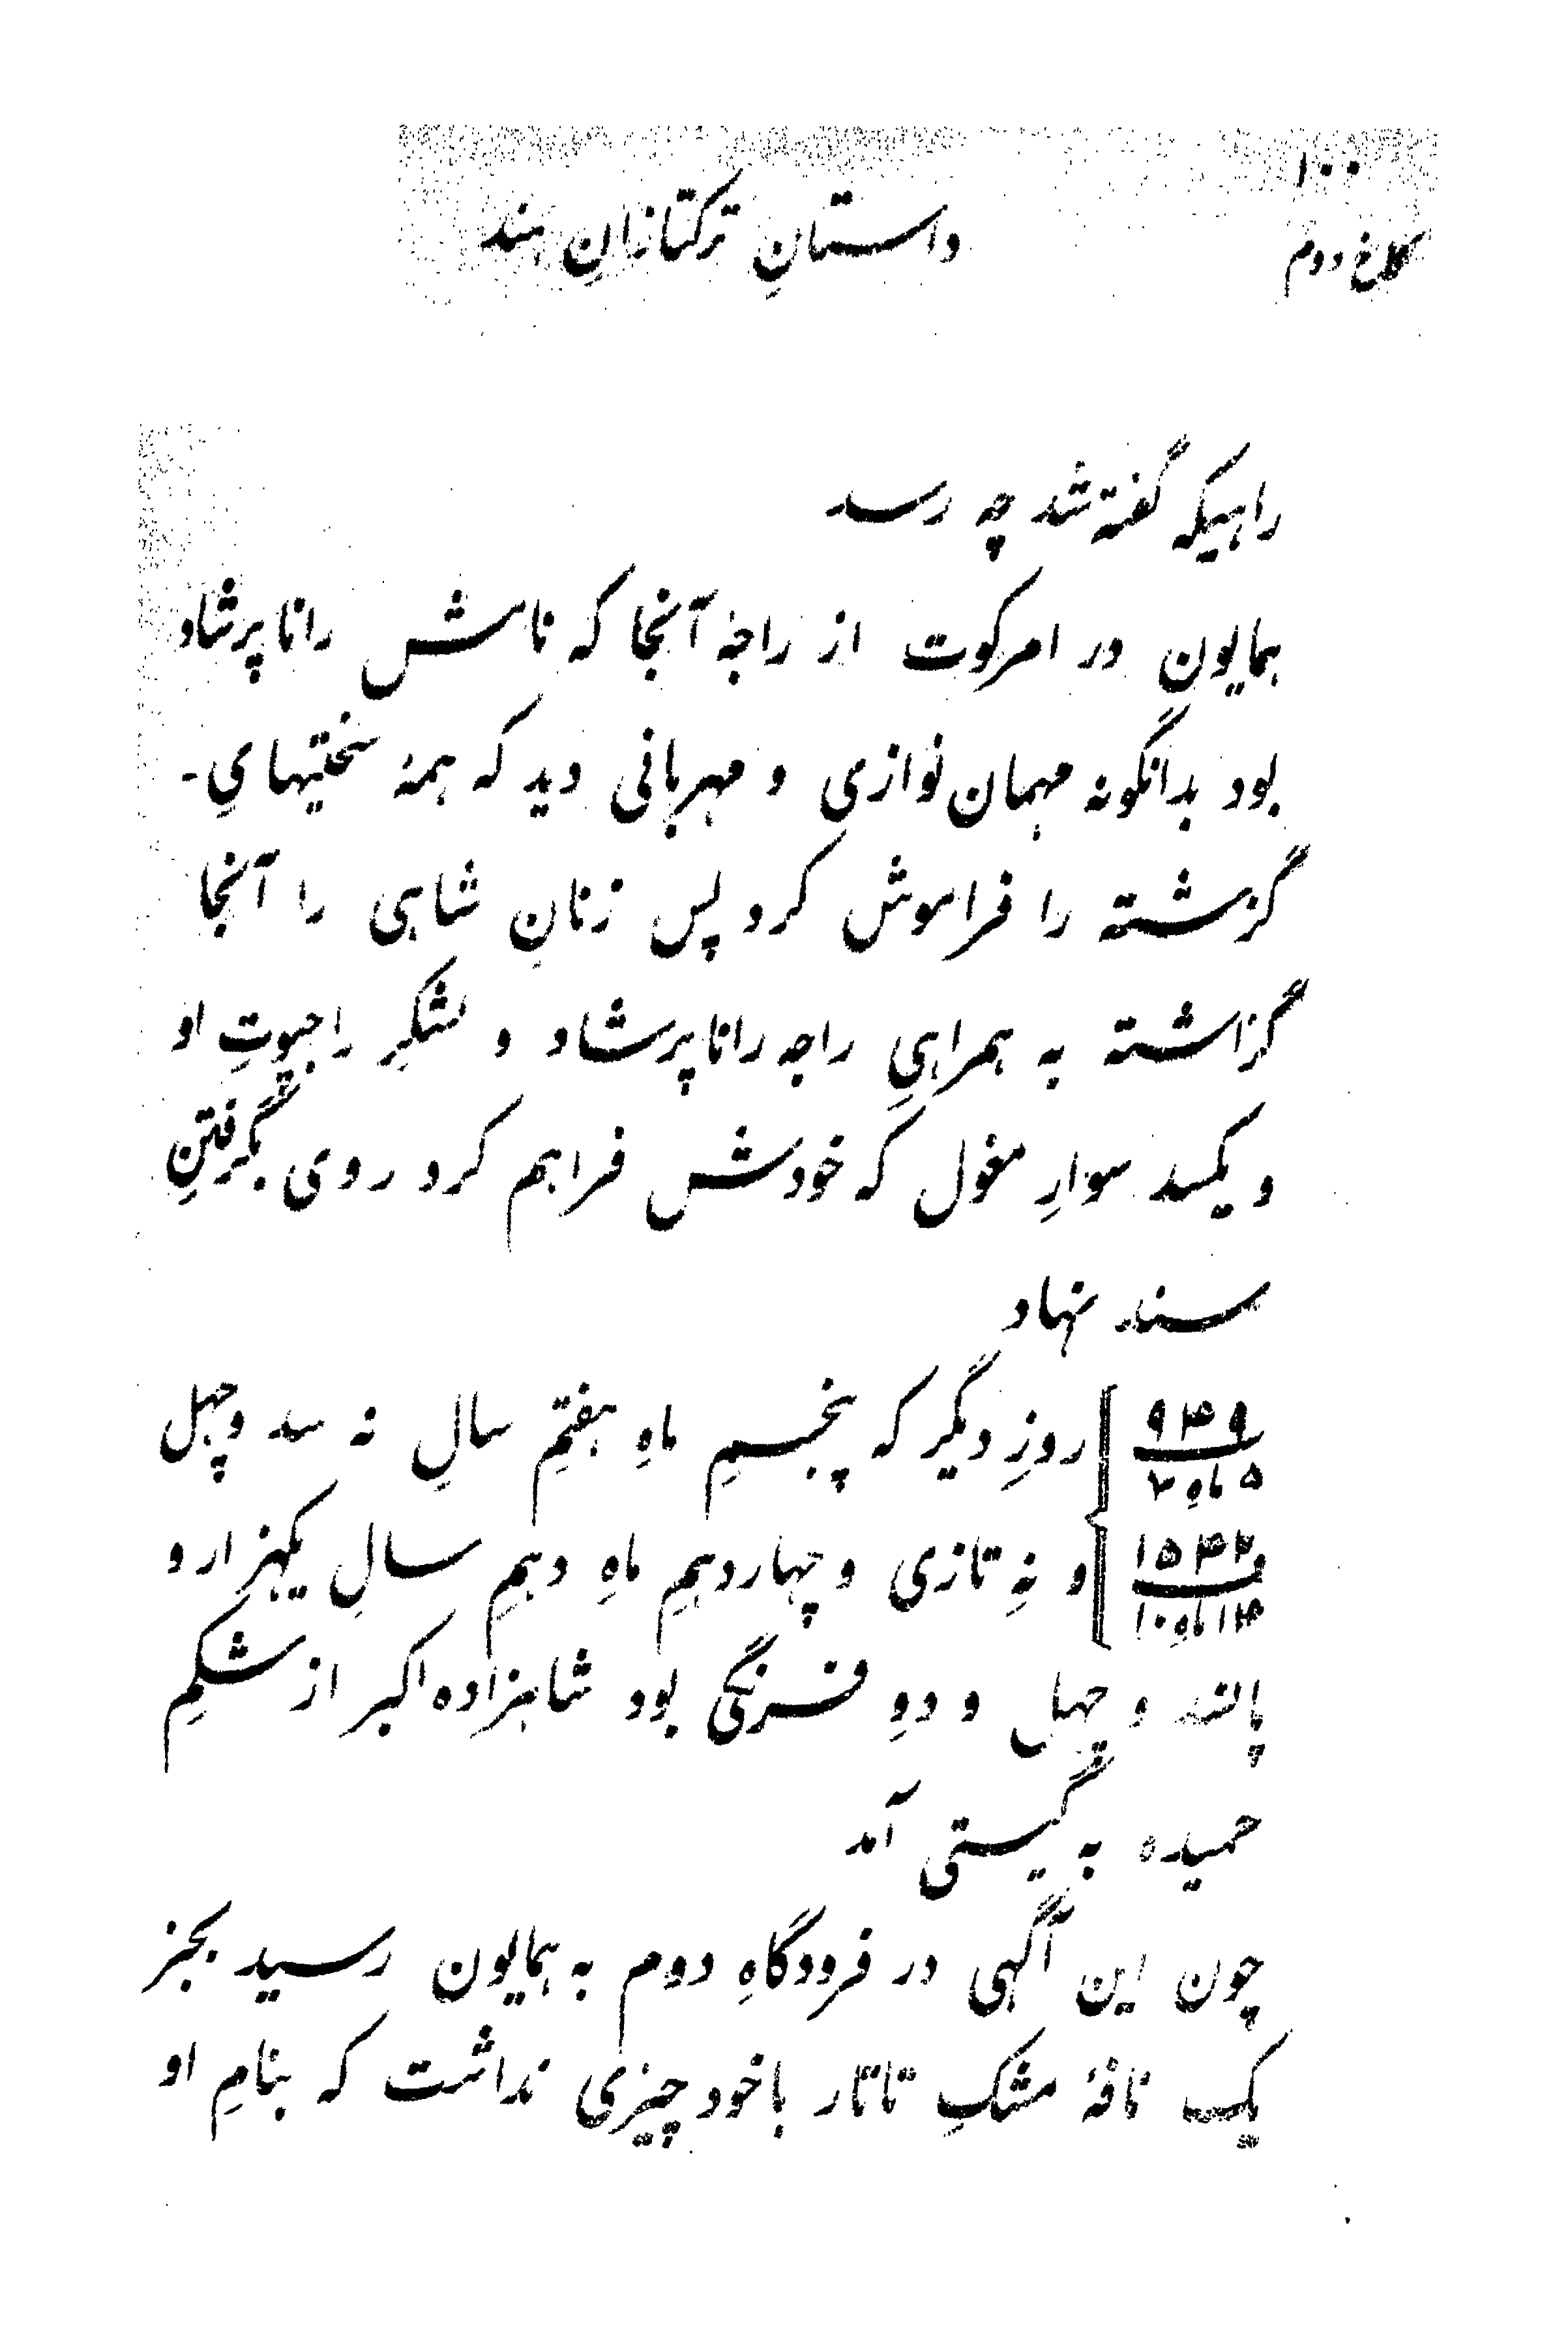 ۱۰۰
کاخ دوم
داستانِ ترکتازانِ هند
راهیکه گفته شد چه رسد
همایون در امرکوت از راجۀ آنجا که نامش راناپرشاد
بود بدانگونه مهمان نوازی و مهربانی دید که همۀ سختیهایِ -
گزشته را فراموش کرد پس زنانِ شاهی را آنجا
گزاشته به همراهیِ راجه راناپرشاد و لشکرِ راجپوتِ او
و یکسد سوارِ مغول که خودش فراهم کرد روی بگرفتنِ
سند نهاد
۹۴۹
۵ ماه ۷
روزِ دیگر که پنجمِ ماهِ هفتمِ سالِ نه سد و چهل
۱۵۴۲
۱۴ ماه ۱۰
و نهِ تازی و چهاردهمِ ماهِ دهمِ سالِ یکهزار و
پانسد و چهل و دوِ فرنگی بود شاهزاده اکبر از شکمِ
حمیده به گیتی آمد
چون این آگهی در فرودگاهِ دوم به همایون رسید بجز
یک نافۀ مشکِ تاتار باخود چیزی نداشت که بنامِ او